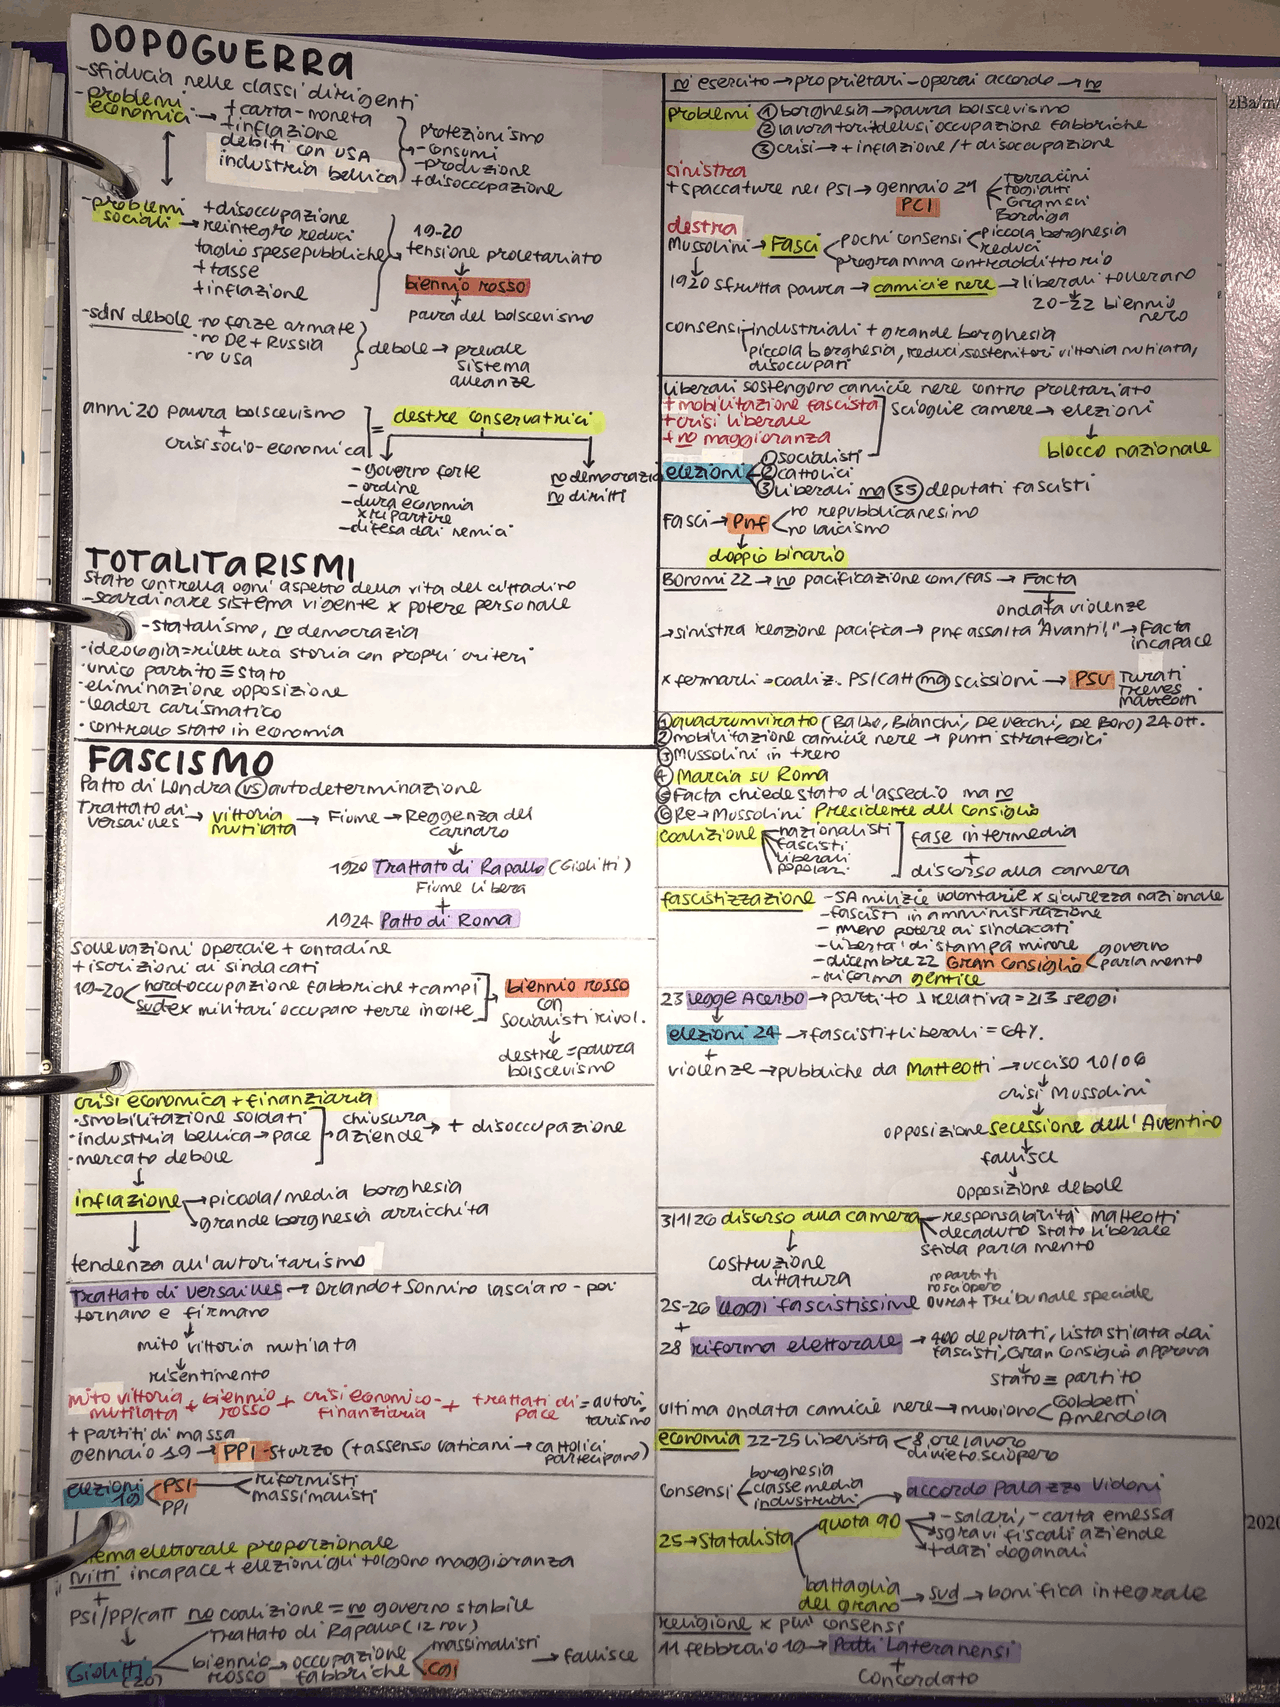 DOPOGUERRA
-sfiducia nelle classi dirigenti
-problemi economici → + carta-moneta
+inflazione
debiti con USA
industria bellica
protezionismo
-consumi
-produzione
+disoccupazione
-problemi sociali → +disoccupazione
reintegro reduci
taglio spese pubbliche
+tasse
+inflazione
19-20
tensione proletariato
biennio rosso
paura del bolscevismo
-SdN debole •no forze armate
•no De+Russia
•no USA
debole → prevale
sistema
alleanze
anni 20 paura bolscevismo
+
crisi socio-economica
= destre conservatrici
-governo forte
-ordine
-dura economia
x ripartire
-difesa dai nemici
no democrazia
no diritti
TOTALITARISMI
stato controlla ogni aspetto della vita del cittadino
-scardinare sistema vigente x potere personale
-statalismo, no democrazia
•ideologia=rilettura storia con propri criteri
•unico partito ≡ stato
•eliminazione opposizione
•leader carismatico
•controllo stato in economia
FASCISMO
Patto di Londra vs autodeterminazione
Trattato di Versailles → vittoria mutilata → Fiume → Reggenza del
Carnaro
1920 Trattato di Rapallo (Giolitti)
Fiume libera
+
1924 Patto di Roma
sollevazioni operaie + contadine
+iscrizioni ai sindacati
19-20 nord:occupazione fabbriche+campi
sud:ex militari occupano terre incolte
biennio rosso
con
socialisti rivol.
destre = paura
bolscevismo
crisi economica + finanziaria
•smobilitazione soldati
•industria bellica → pace
•mercato debole
chiusura
aziende → + disoccupazione
inflazione → piccola/media borghesia
grande borghesia arricchita
tendenza all'autoritarismo
Trattato di Versailles → Orlando+Sonnino lasciano - poi
tornano e firmano
mito vittoria mutilata
risentimento
mito vittoria mutilata + biennio rosso + crisi economico-finanziaria + trattati di pace = autoritarismo
+ partiti di massa
gennaio 19 → PPI -Sturzo (+assenso vaticani → cattolici partecipano)
elezioni 19 PSI riformisti
massimalisti
PPI
sistema elettorale proporzionale
Nitti incapace + elezioni gli tolgono maggioranza
+
PSI/PP/catt no coalizione = no governo stabile
Giolitti (20) Trattato di Rapallo (12 nov)
biennio rosso → occupazione fabbriche massimalisti
CGL
→ fallisce
no esercito → proprietari-operai accordo → no
problemi ① borghesia → paura bolscevismo
② lavoratori+delusi occupazione fabbriche
③ crisi → + inflazione / + disoccupazione
sinistra
+ spaccature nel PSI → gennaio 21
PCI
Terracini
Togliatti
Gramsci
Bordiga
destra
Mussolini → Fasci pochi consensi piccola borghesia
reduci
programma contraddittorio
1920 sfrutta paura → camicie nere → liberali tollerano
20-22 biennio
nero
consensi-industriali + grande borghesia
piccola borghesia, reduci, sostenitori vittoria mutilata,
disoccupati
liberali sostengono camicie nere contro proletariato
+mobilitazione fascista
+crisi liberale
+no maggioranza
scioglie camere → elezioni
blocco nazionale
elezioni ① socialisti
② cattolici
③ liberali ma 35 deputati fascisti
Fasci → Pnf no repubblicanesimo
no laicismo
doppio binario
Bonomi 22 → no pacificazione com/fas → Facta
ondata violenze
→ sinistra reazione pacifica → pnf assalta "Avanti!" → Facta
incapace
x fermarli = coaliz. PSI/catt ma scissioni → PSU Turati
Treves
Matteotti
① quadrumvirato (Balbo, Bianchi, De Vecchi, De Bono) 24 ott.
② mobilitazione camicie nere → punti strategici
③ Mussolini in treno
④ Marcia su Roma
⑤ Facta chiede stato d'assedio ma no
⑥ Re → Mussolini Presidente del Consiglio
coalizione nazionalisti
fascisti
liberali
popolari
fase intermedia
+
discorso alla camera
fascistizzazione -SA milizie volontarie x sicurezza nazionale
-fascisti in amministrazione
- meno potere ai sindacati
-libertà di stampa minore
-dicembre 22 Gran Consiglio governo
parlamento
-riforma gentile
23 legge Acerbo → partito > relativa = 213 seggi
elezioni 24 → fascisti+liberali = 64%.
+
violenze → pubbliche da Matteotti → ucciso 10/06
crisi Mussolini
opposizione secessione dell'Aventino
fallisce
opposizione debole
3/1/26 discorso alla camera responsabilità Matteotti
decaduto stato liberale
sfida parlamento
costruzione
dittatura
no partiti
no sciopero
25-26 leggi fascistissime OVRA + Tribunale speciale
+
28 riforma elettorale → 400 deputati, lista stilata dai
fascisti, Gran Consiglio approva
stato ≡ partito
ultima ondata camicie nere → muoiono Gobbetti
Amendola
economia 22-25 liberista 8 ore lavoro
divieto sciopero
consensi borghesia
classe media
industriali → accordo Palazzo Vidoni
25 → statalista quota 90 -salari, -carta emessa
sgravi fiscali aziende
+dazi doganali
battaglia
del grano → sud → bonifica integrale
religione x più consensi
11 febbraio 19 → Patti Lateranensi
+
Concordato
zBa/m/
2020